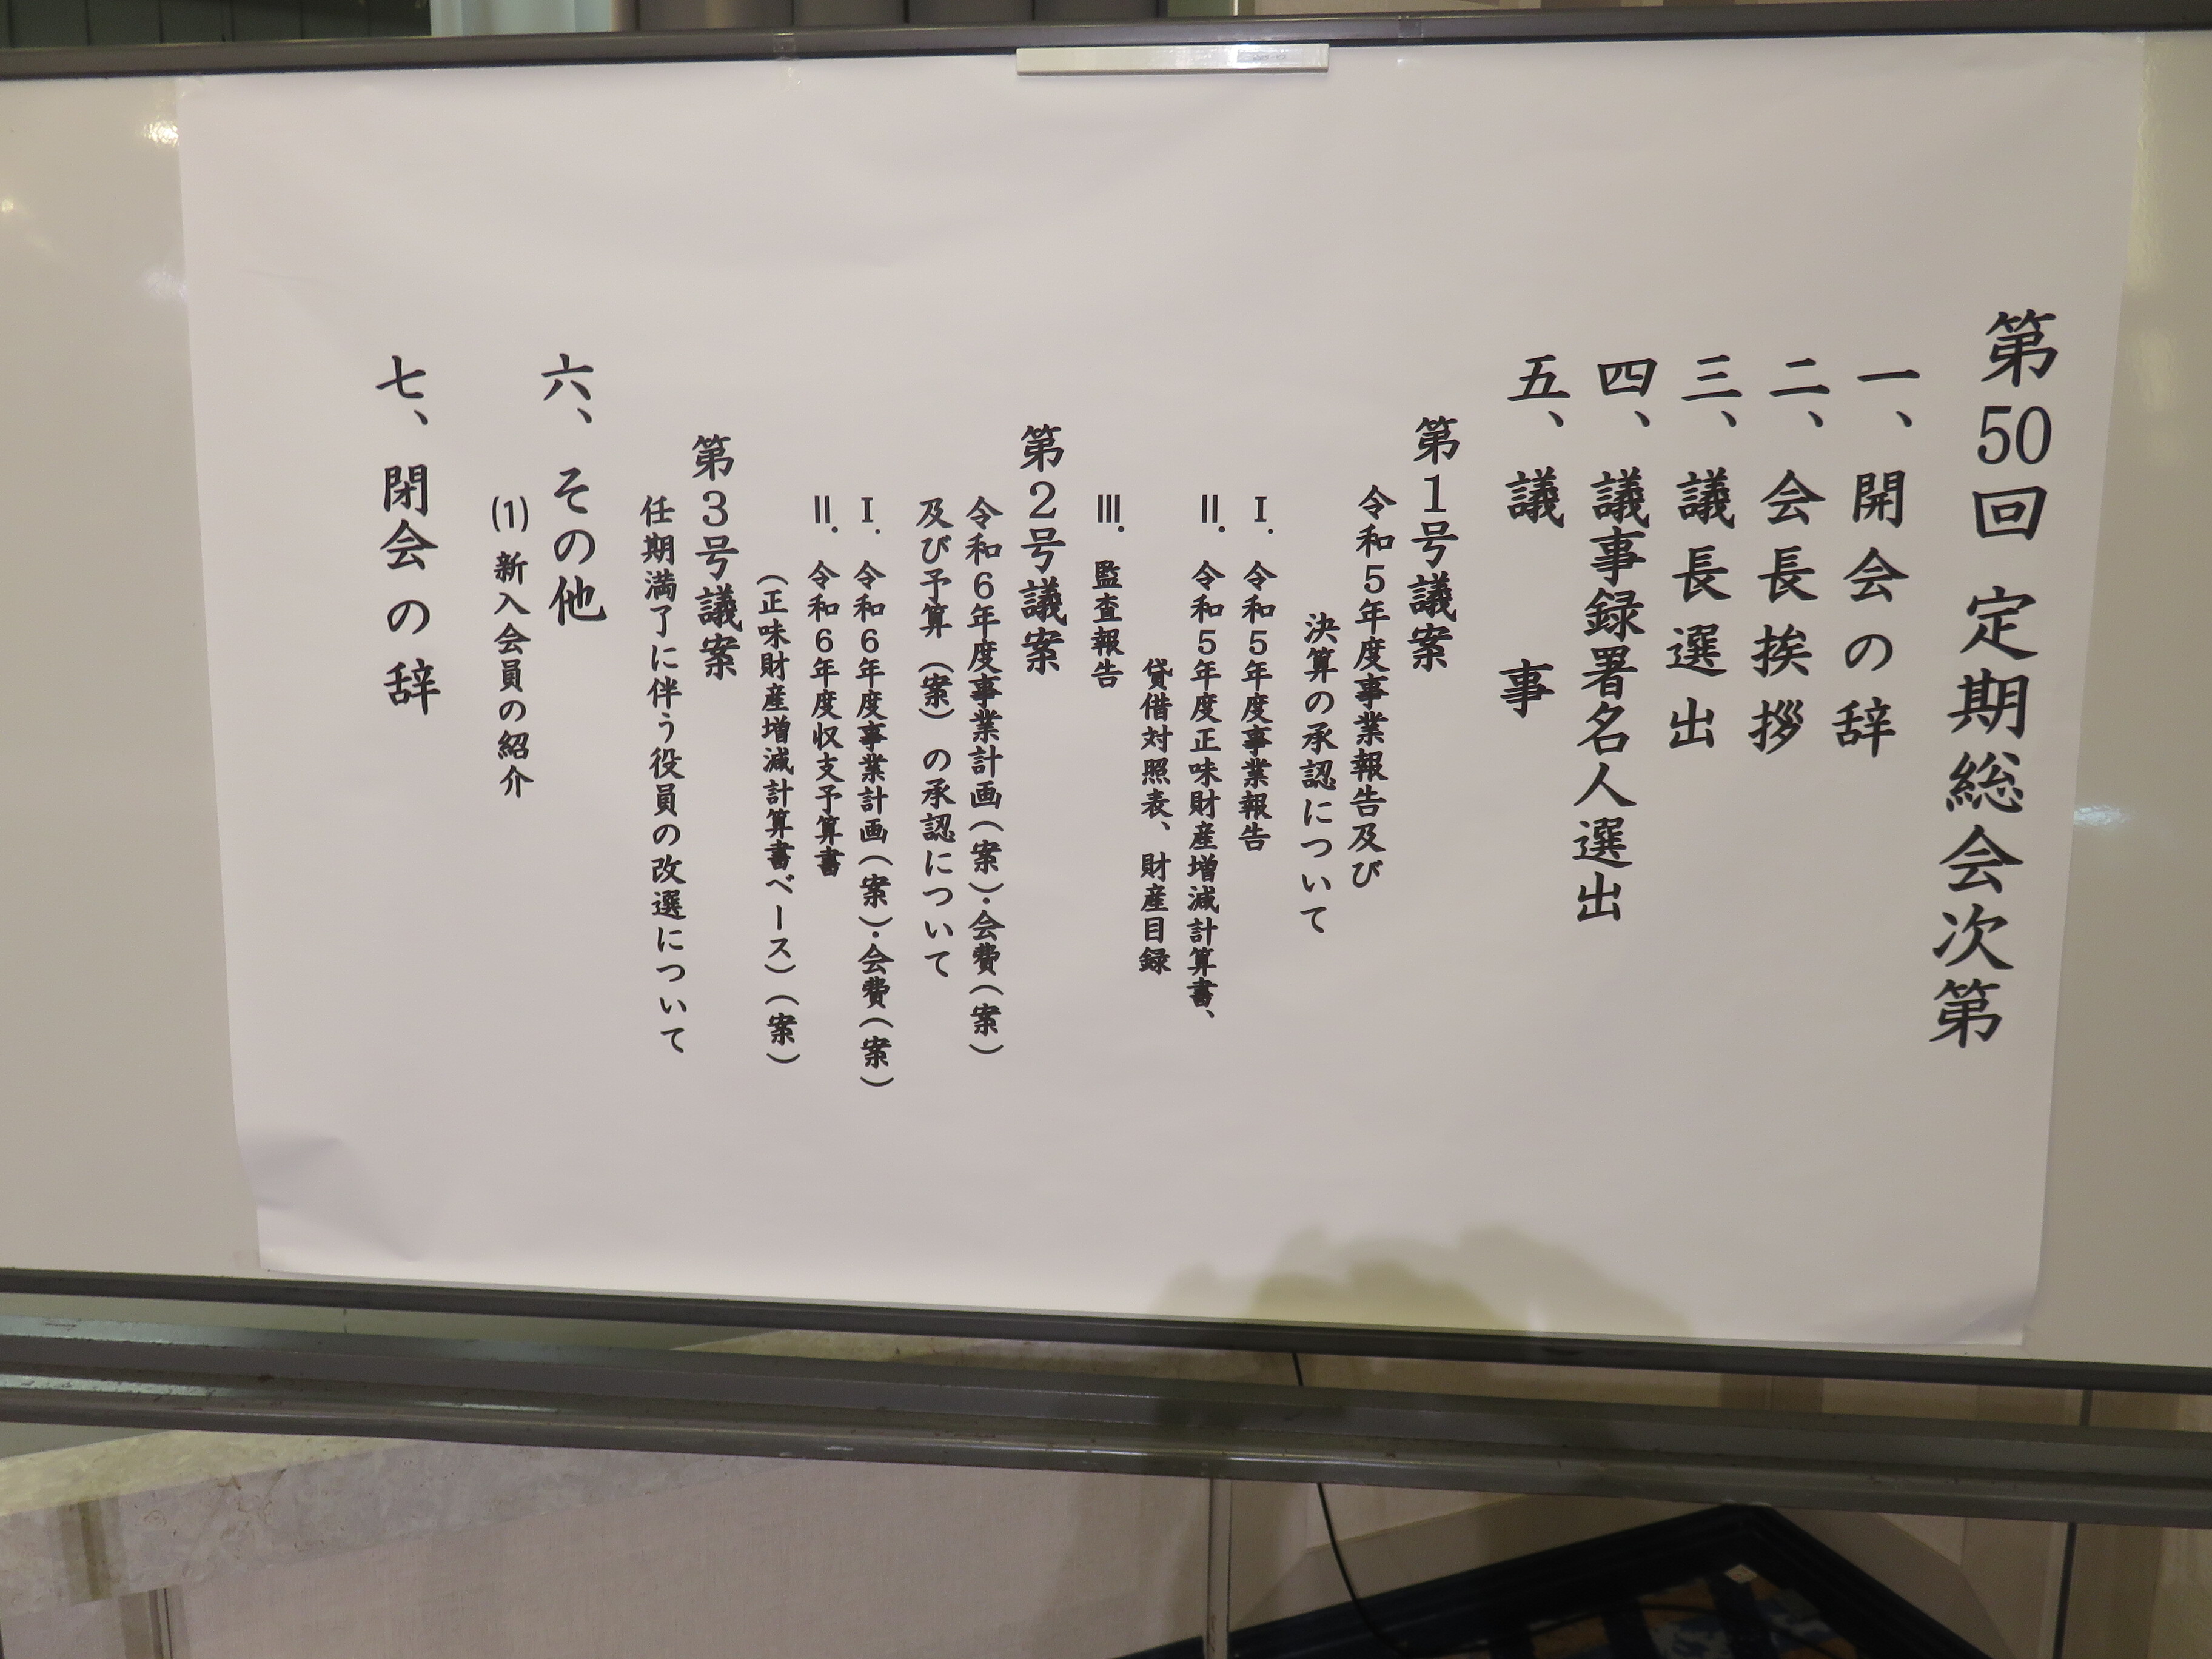 第50回 定期総会次第
一、開会の辞
二、会長挨拶
三、議長選出
四、議事録署名人選出
五、議 事
第1号議案
令和5年度事業報告及び
決算の承認について
Ⅰ. 令和5年度事業報告
Ⅱ. 令和5年度正味財産増減計算書、
貸借対照表、財産目録
Ⅲ. 監査報告
第2号議案
令和6年度事業計画(案)・会費(案)
及び予算(案)の承認について
Ⅰ. 令和6年度事業計画(案)・会費(案)
Ⅱ. 令和6年度収支予算書
(正味財産増減計算書ベース)(案)
第3号議案
任期満了に伴う役員の改選について
六、その他
(1) 新入会員の紹介
七、閉会の辞